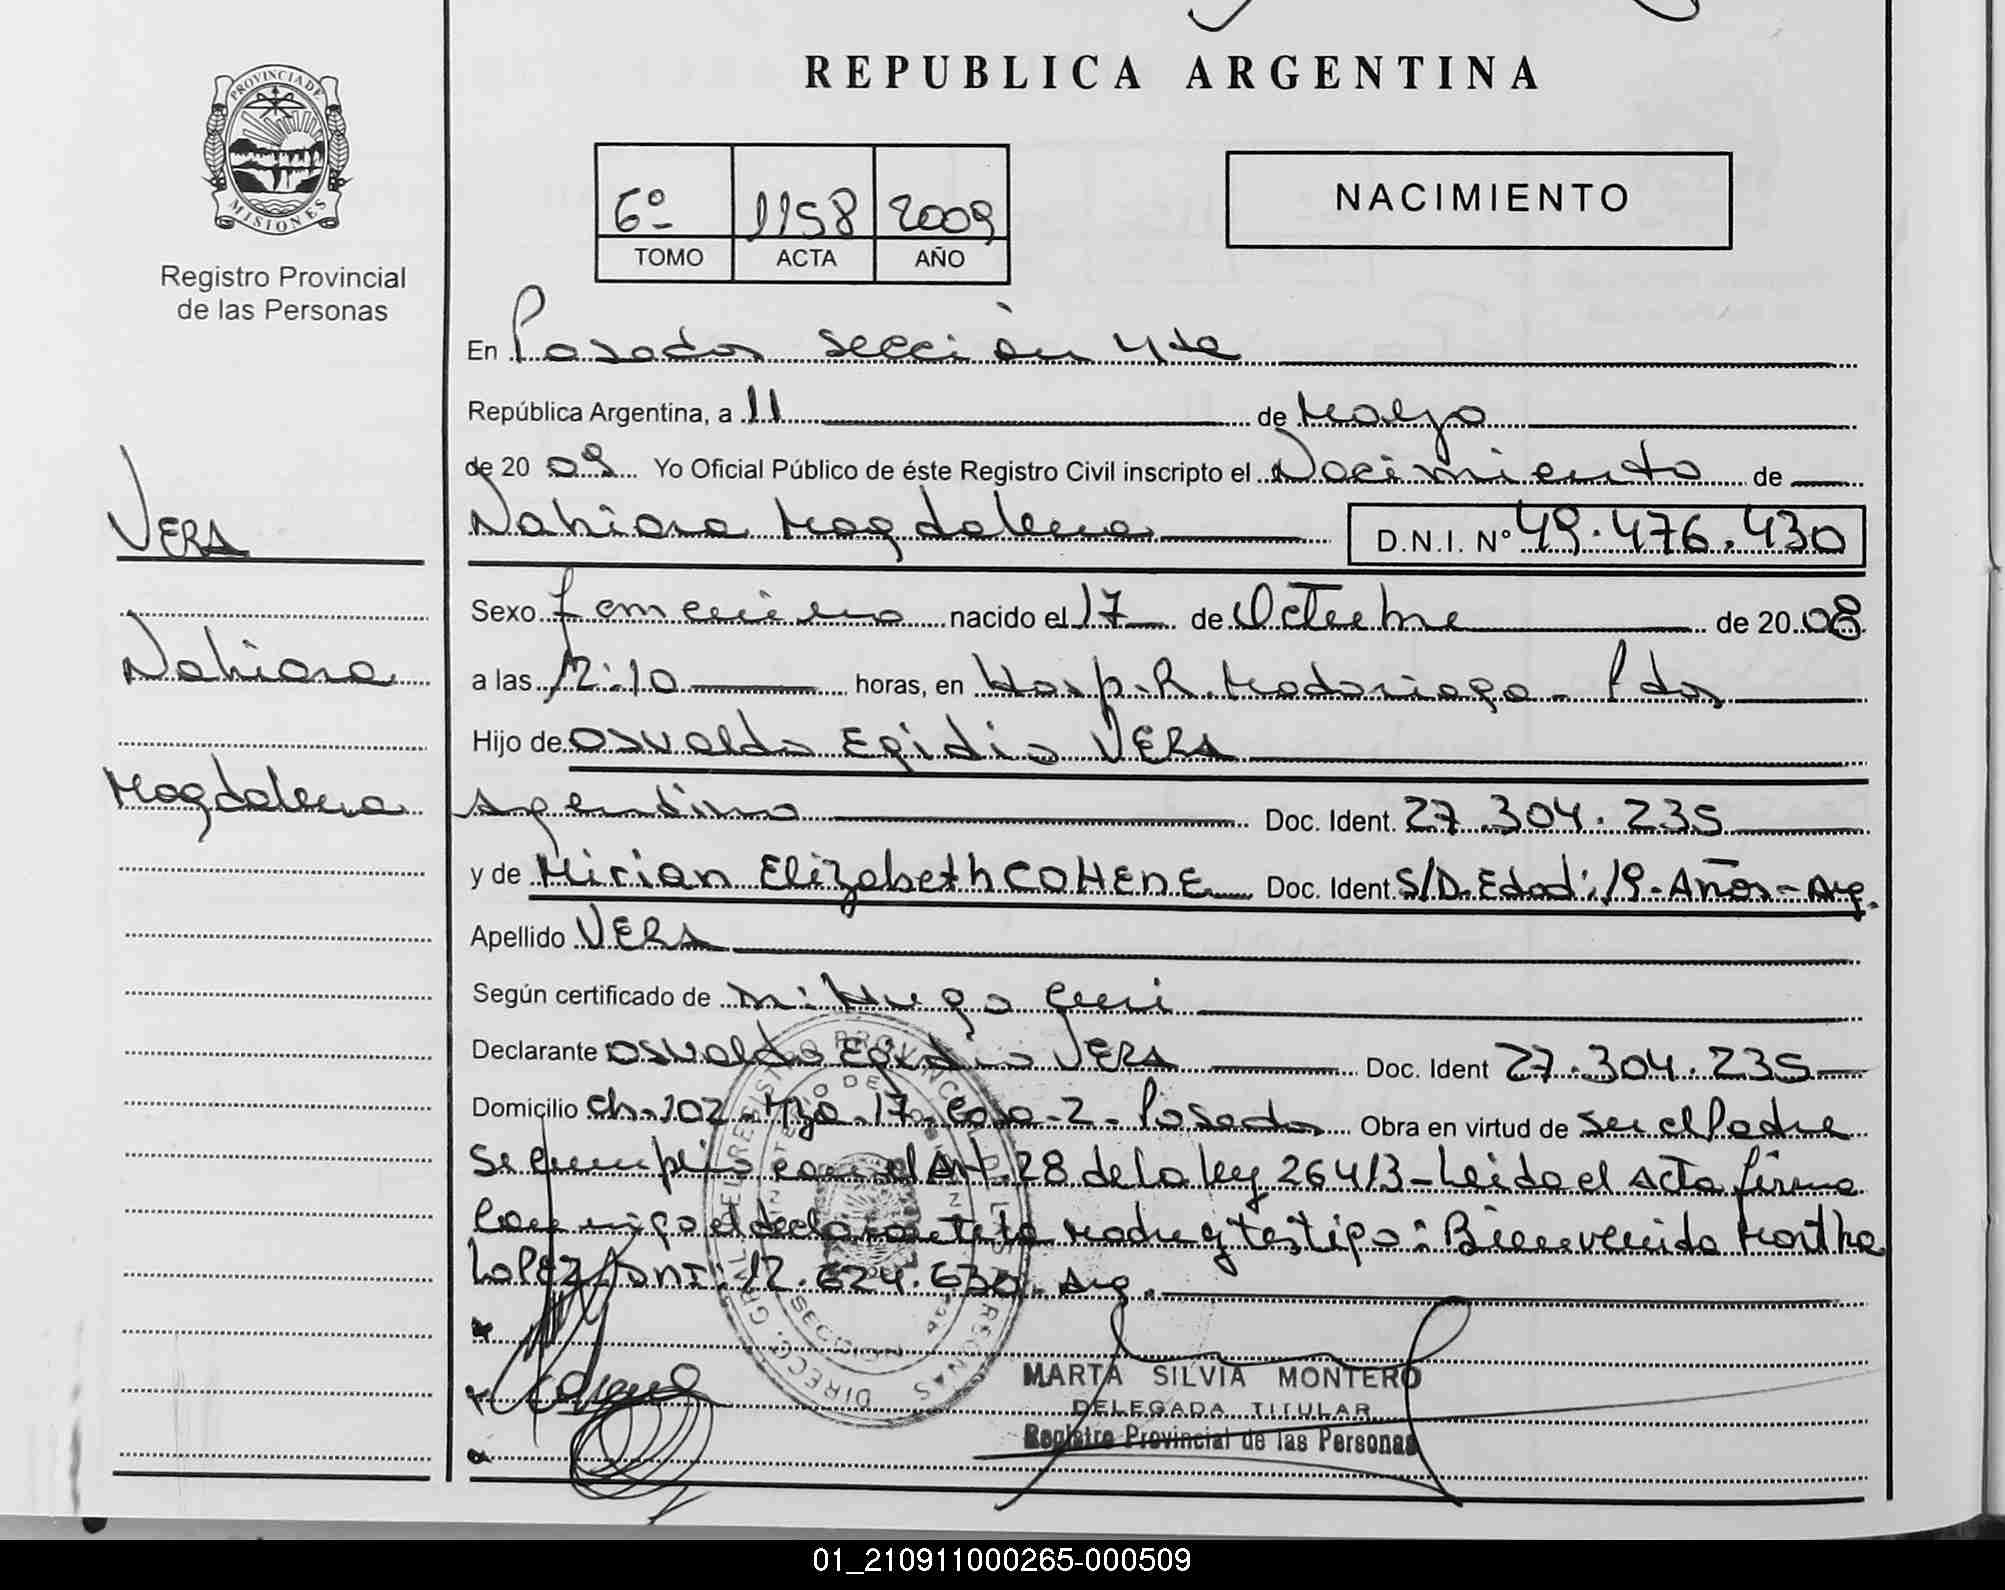 REPUBLICA ARGENTINA
PROVINCIA DE
MISIONES
Registro Provincial
de las Personas
6º 1158 2009
TOMO ACTA AÑO
NACIMIENTO
En Posadas sección 4ta
República Argentina, a 11 de Mayo
de 20 09 Yo Oficial Público de éste Registro Civil inscripto el Nacimiento de
VERA
Nahiara Magdalena D.N.I. Nº 49.476.430
Sexo femenino nacido el 17 de Octubre de 20 08
Nahiara
a las 12:10 horas, en Hosp. R. Madariaga - Pdas
Hijo de Osvaldo Egidio VERA
Magdalena
Argentino Doc. Ident. 27.304.235
y de Mirian Elizabeth COHENE Doc. Ident. S/D. Edad: 19 - Años - Arg.
Apellido VERA
Según certificado de Hugo
Declarante Osvaldo Egidio VERA Doc. Ident 27.304.235
Domicilio Ch. 102 - Mza. 17 - Casa - 2 - Posadas Obra en virtud de ser el Padre
Se cumplió con el Art. 28 de la ley 26413 - Leida el Acta firma
conmigo el declarante la madre y testigo: Bienvenida Martha
LOPEZ DNI: 12.624.630. Arg.
MARTA SILVIA MONTERO
DELEGADA TITULAR
Registro Provincial de las Personas
01_210911000265-000509